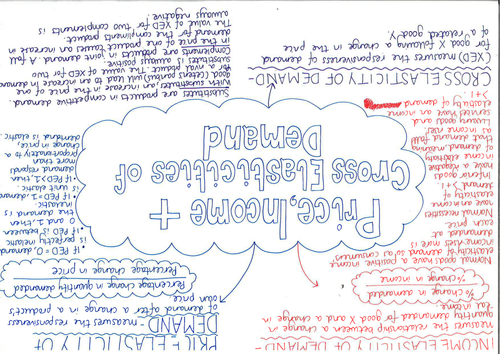 INCOME ELASTICITY OF DEMAND-
measures the relationship between a change in
quantity demanded for good X and a change in
income.
% change in demand
% change in income
Normal goods have a positive income
elasticity of demand so as consumers
income rises more is
demanded at
each price.
Normal necessities
have an income
elasticity of
demand
Inferior goods
have a negative
income elasticity
of demand meaning
that demand falls
as income rises.
Luxury goods and
services have an income
elasticity of demand
> +1.
PRICE ELASTICITY OF
DEMAND - measures the responsiveness
of demand after a change in a product's
own price
Percentage change in quantity demanded
Percentage change in price
•If PED=0, demand
is perfectly inelastic
•If PED is between
0 and 1, then
the demand is
inelastic
•If PED=1, demand
is unit elastic
•If PED>1, then
demand responds
more than
proportionately to a
change in price;
demand is elastic.
Price, Income +
Cross Elasticities of
Demand
CROSS ELASTICITY OF DEMAND-
(XED) measures the responsiveness of demand
for good X following a change in the price
of a related good Y.
Substitutes are products in competitive demand.
With substitutes, an increase in the price of one
good (ceteris paribus) will lead to an increase in demand
for a rival product. The value of XED for two
substitutes is always positive.
Complements are products in joint demand. A fall
in the price of one product causes an increase in
demand for the complements product. The
value of XED for two complements is
always negative